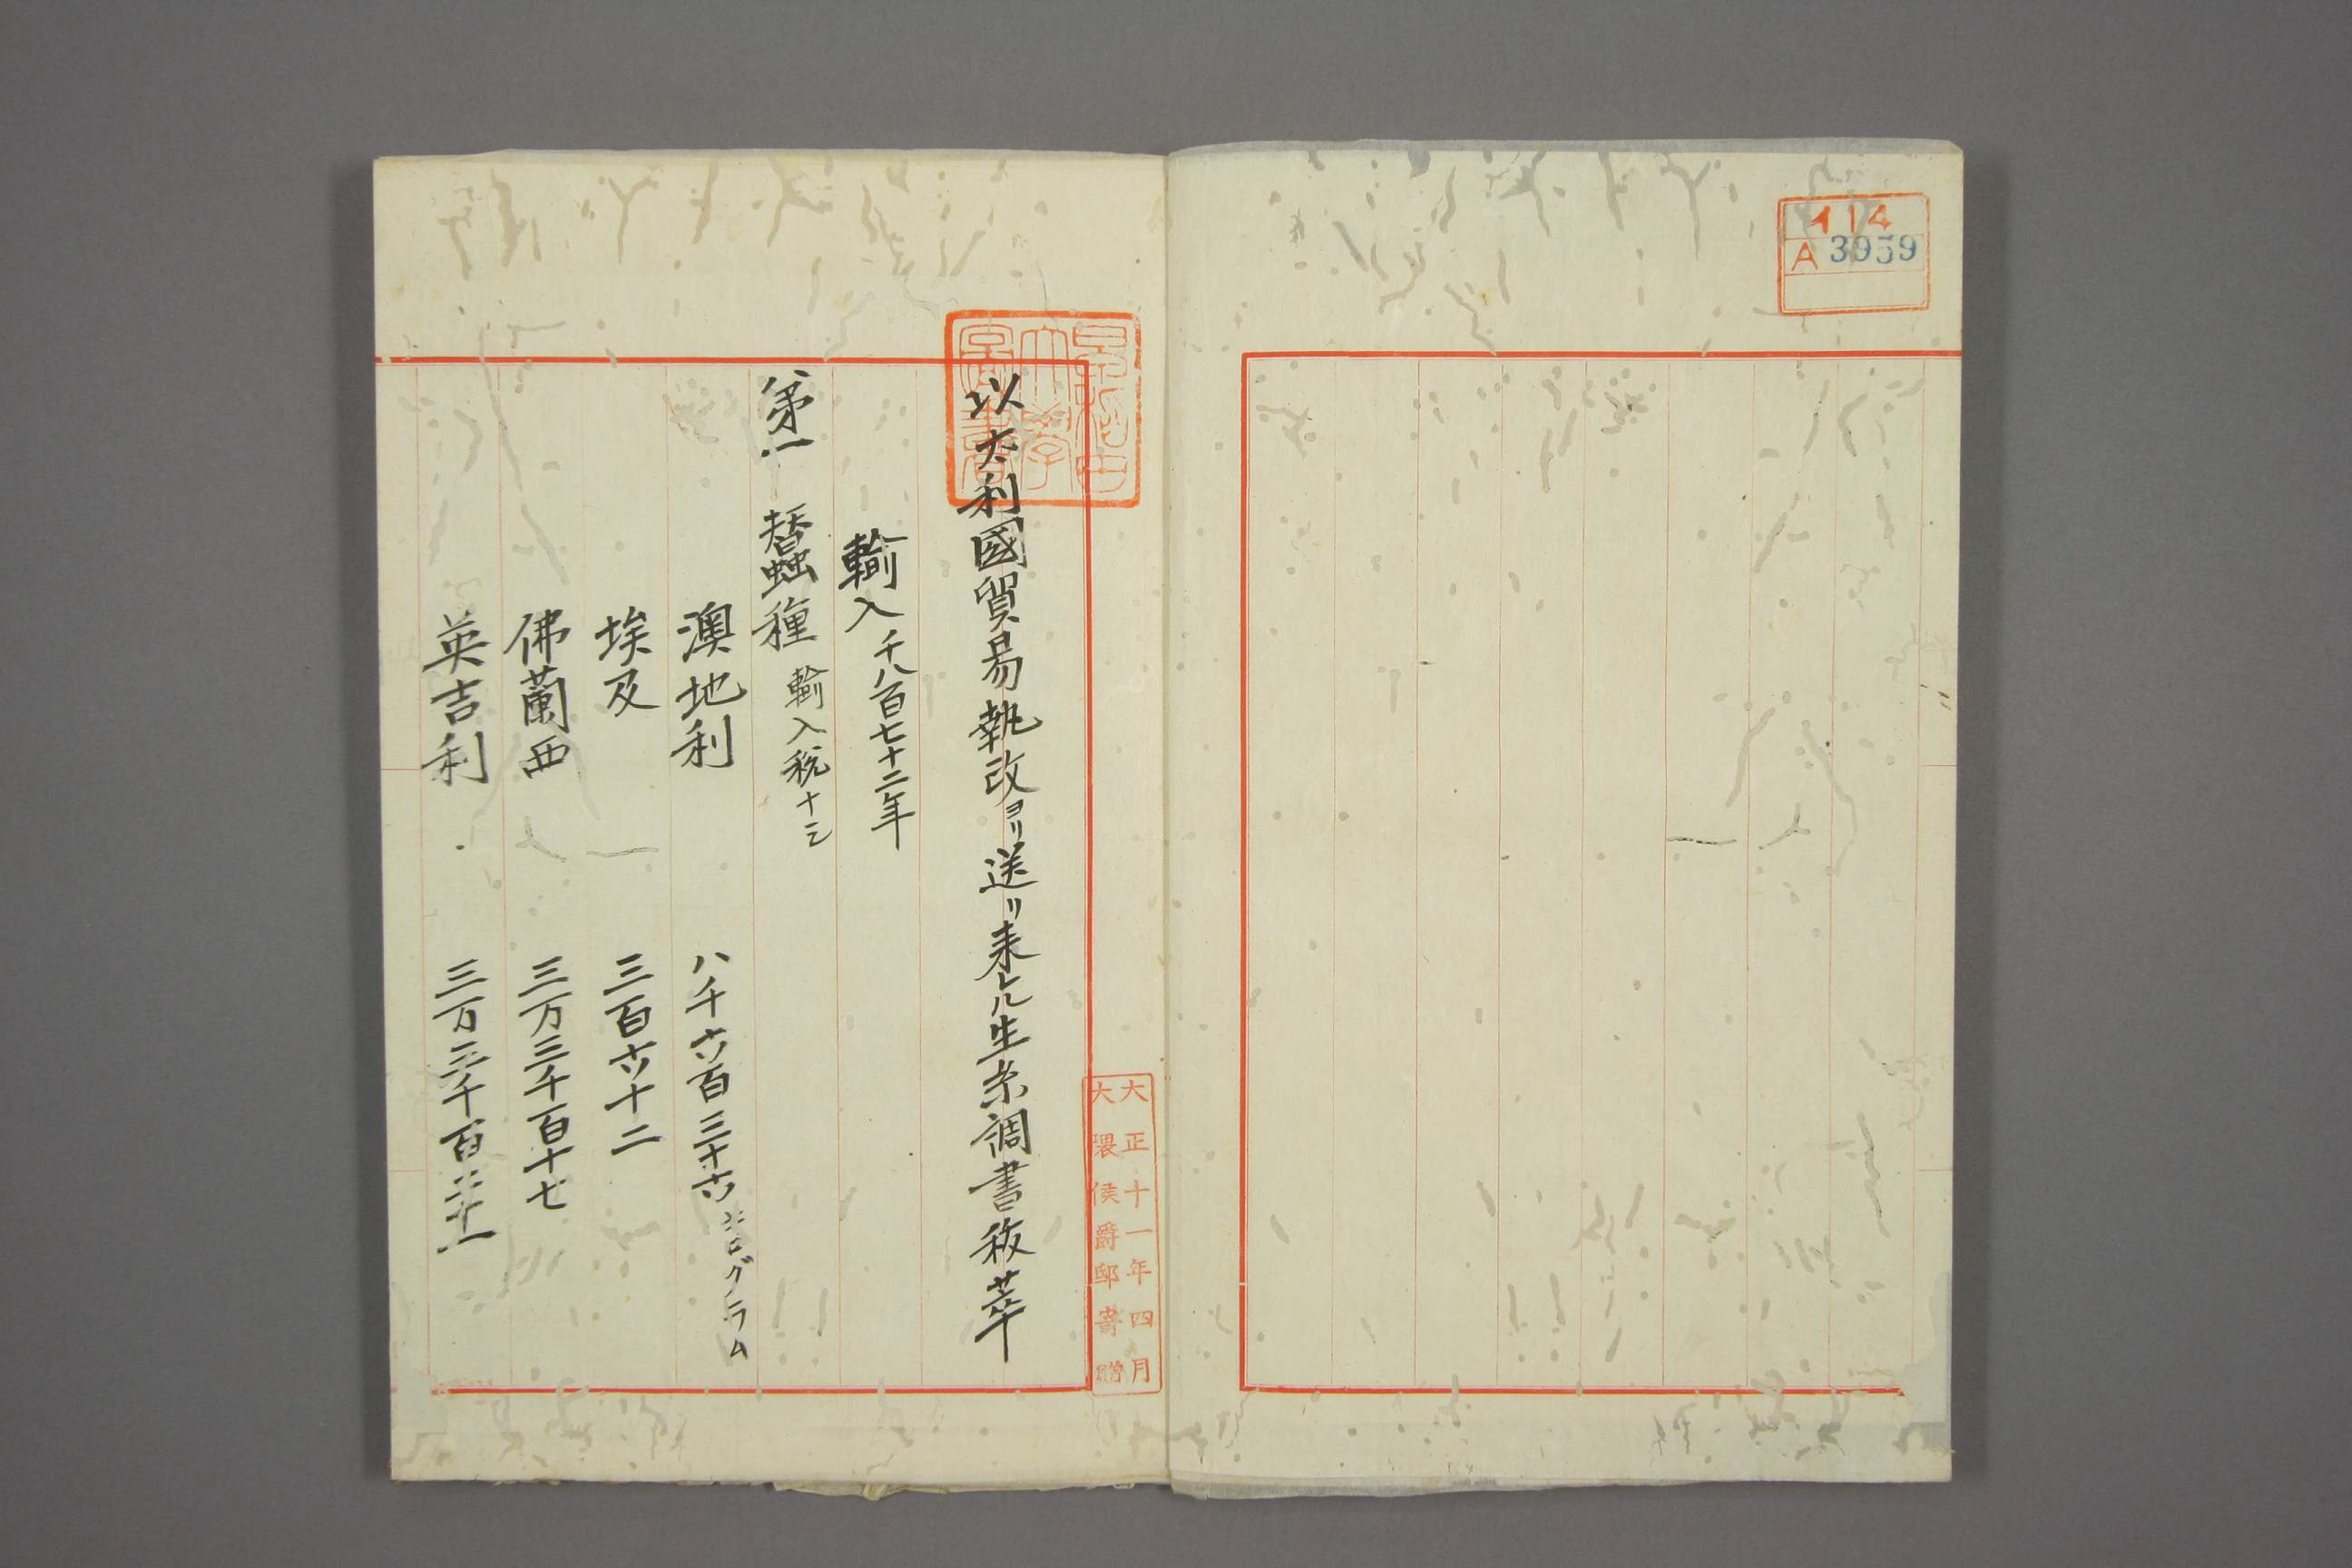 イ14
A 3959
早稲田
大學
圖書
大正十一年四月
大隈侯爵邸寄贈
以太利國貿易執政ヨリ送リ来レル生糸調書抜萃
輸入 千八百七十二年
第一 蠶種 輸入税ナシ
澳地利 八千六百三十六キログラム
埃及 三百六十二
佛蘭西 三万三千百十七
英吉利 三万三千百二十一